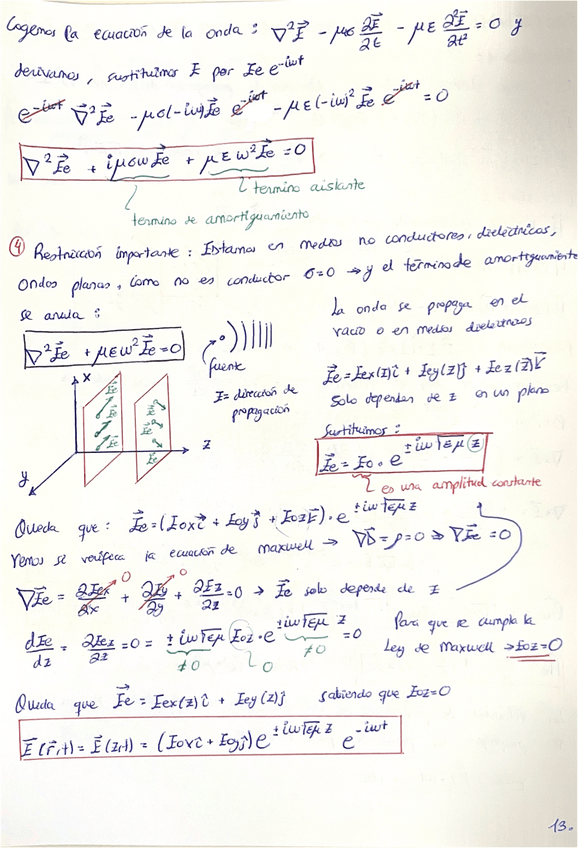 Cogemos la ecuación de la onda : ∇²E⃗ - μσ ∂E⃗/∂t - με ∂²E⃗/∂t² = 0 y
derivamos, sustituimos E por Ee e^-iωt
e^-iωt ∇²E⃗e - μσ(-iω)E⃗e e^-iωt - με(-iω)² E⃗e e^-iωt = 0
∇²E⃗e + iμσωE⃗e + μεω²E⃗e = 0
termino aislante
termino de amortiguamiento
④ Restricción importante : Estamos en medios no conductores, dieléctricos,
Ondas planas, como no es conductor σ=0 → y el término de amortiguamiento
se anula :
∇²E⃗e + μεω²E⃗e = 0
fuente
Z = dirección de
propagación
La onda se propaga en el
vacío o en medios dieléctricos
E⃗e = Eex(z)î + Eey(z)ĵ + Eez(z)k⃗
Solo depende de z en un plano
x
E⃗e
E⃗e
E⃗e
E⃗e
E⃗e
E⃗e
E⃗e
z
y
Sustituimos :
E⃗e = E⃗o · e^±iω√εμ z
es una amplitud constante
Queda que : E⃗e = (Eoxî + Eoyĵ + Eozk⃗) · e^±iω√εμ z
Vemos se verifica la ecuación de maxwell → ∇D⃗ = ρ = 0 ⇒ ∇E⃗e = 0
∇E⃗e = ∂Eex/∂x 0 + ∂Ey/∂y 0 + ∂Ez/∂z = 0 → E⃗e solo depende de z
dEe/dz = ∂Eez/∂z = 0 = ± iω√εμ Eoz · e^±iω√εμ z = 0
≠0 0 ≠0
Para que se cumpla la
Ley de Maxwell → Eoz=0
Queda que E⃗e = Eex(z)î + Eey(z)ĵ sabiendo que Eoz=0
E⃗(r⃗,t) = E⃗(z,t) = (Eoxî + Eoyĵ) e^±iω√εμ z e^-iωt
13.